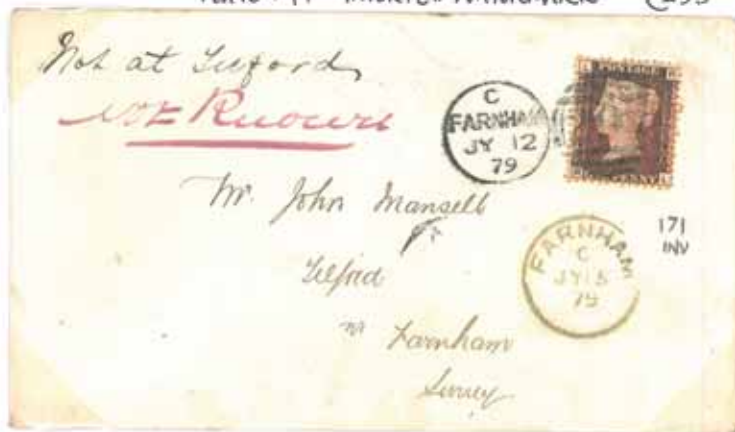 Not at Tilford
Not Known
C
FARNHAM
JY 12
79
POSTAGE
Mr. John Mansell
Tilford
nr Farnham
Surrey
171
INV
FARNHAM
C
79